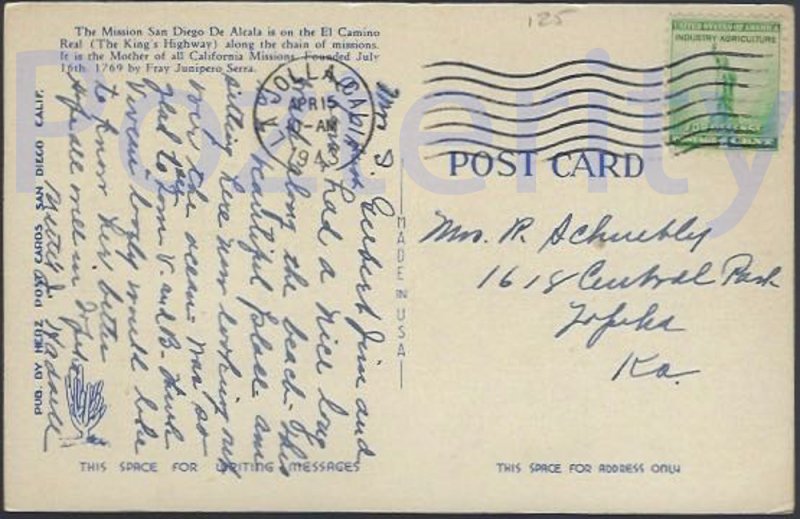 125
The Mission San Diego De Alcala is on the El Camino
Real (The King's Highway) along the chain of missions.
It is the Mother of all California Missions. Founded July
16th, 1769 by Fray Junipero Serra.
LA JOLLA CALIF.
APR 15
-AM
1943
UNITED STATES OF AMERICA
INDUSTRY AGRICULTURE
FOR DEFENSE
1 CENT
POST CARD
Mrs. R. Schnebly
1618 Central Park
Topeka
Ka.
Mrs. S. Gilbert Jim and
had a nice long
along the beach. This
is a beautiful place am
sitting here now looking out
over the ocean. Was so
glad to
Vivian
to know her better
Hope all well in Topeka
MADE IN USA
PUB. BY HERZ POST CARDS SAN DIEGO CALIF.
THIS SPACE FOR WRITING MESSAGES
THIS SPACE FOR ADDRESS ONLY
Pozterity